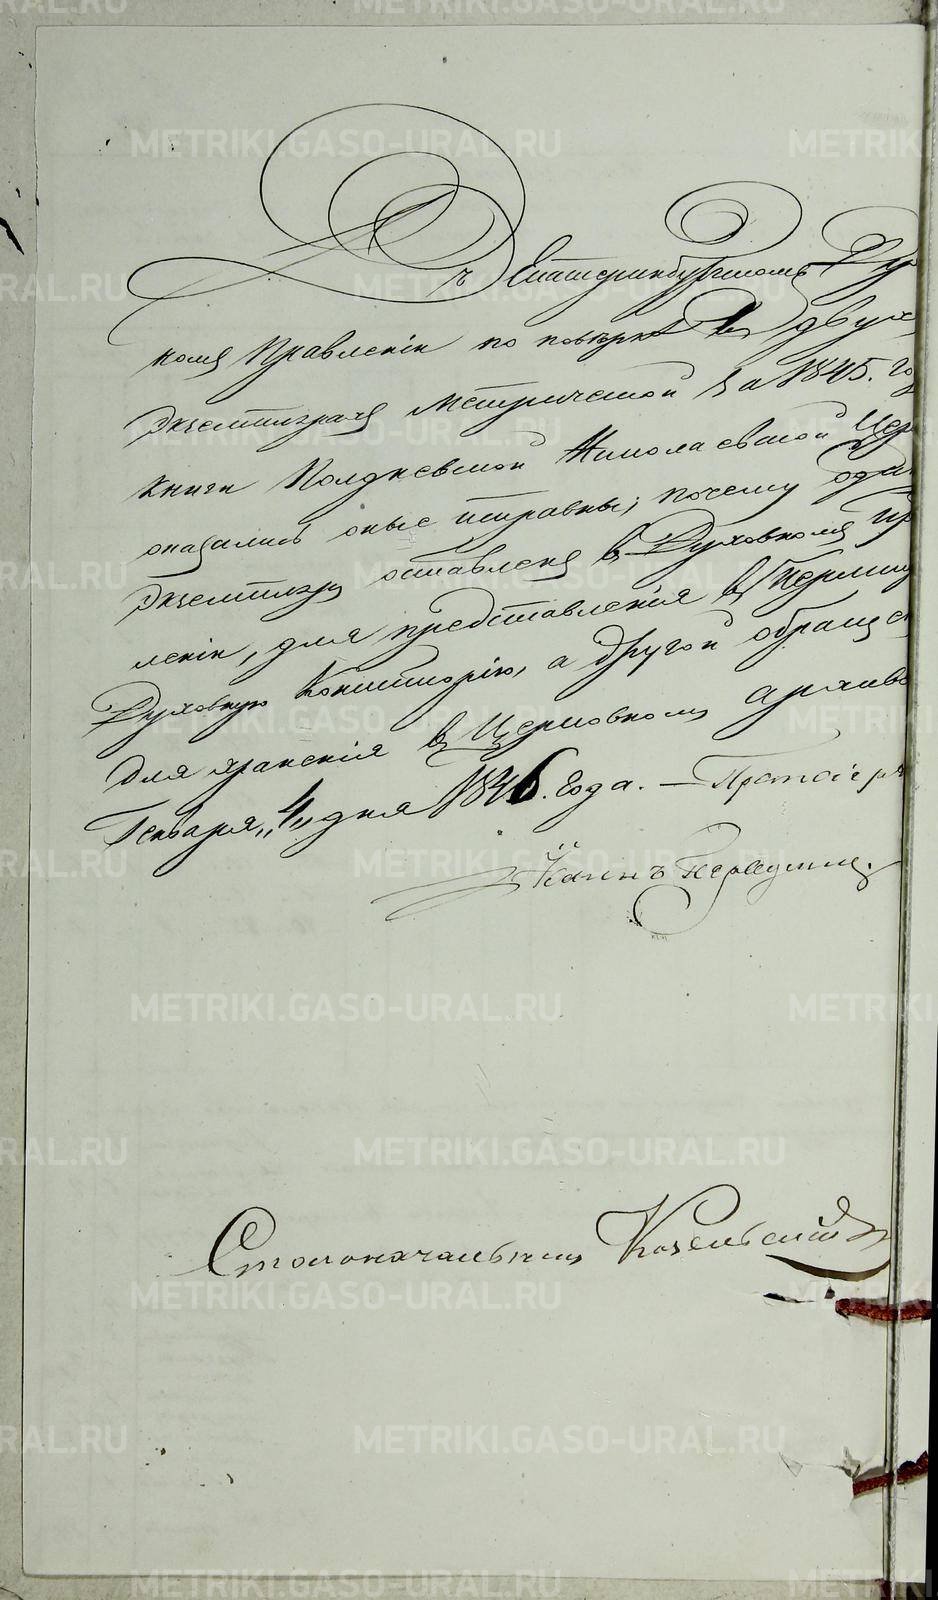 Въ Екатеринбургскомъ Ду
номъ Правленіи по повѣркѣ въ двух
Экземплярахъ Метрической за 1845. го
книги Полдневской Николаевской Цер
оказались оные исправны; почему один
Экземпляръ оставленъ въ Духовномъ Пр
леніи, для представленія въ Пермску
Духовную Консисторію, а другой обращен
для храненія въ Церковномъ архиво
Генваря „4„ дня 1846. года. — Протоіерей
Іоаннъ
Столоначальникъ Козельскій
METRIKI.GASO-URAL.RU